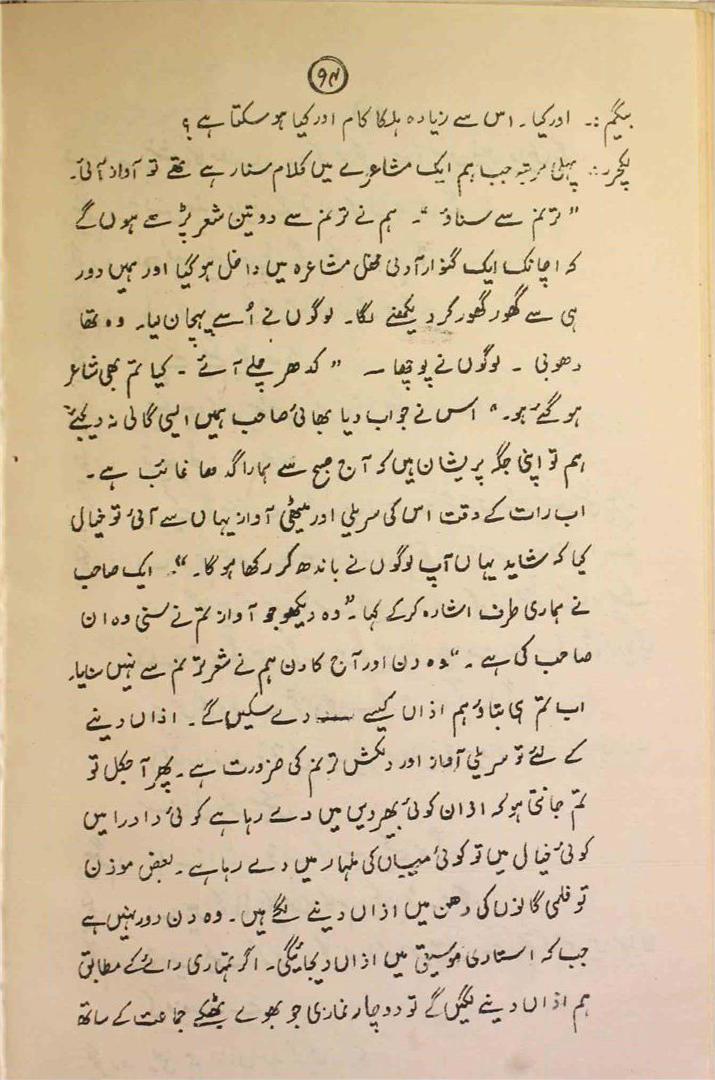 ۹۴
بیگم :۔ اور کیا۔ اس سے زیادہ ہلکا کام اور کیا ہو سکتا ہے ؟
لکچرر :۔ پہلی مرتبہ جب ہم ایک مشاعرے میں کلام سنا رہے تھے تو آواز آئی۔
” ترنم سے سناؤ “۔ ہم نے ترنم سے دو تین شعر پڑھے ہوں گے
کہ اچانک ایک گنوار آدمی محفل مشاعرہ میں داخل ہو گیا اور ہمیں دور
ہی سے گھور گھور کر دیکھنے لگا۔ لوگوں نے اُسے پہچان لیا۔ وہ تھا
دھوبی ۔ لوگوں نے پوچھا ۔ ” کدھر چلے آئے ۔ کیا تم بھی شاعر
ہو گئے ہو۔“ اس نے جواب دیا بھائی صاحب ہمیں ایسی گالی نہ دیجئے
ہم تو اپنی جگہ پریشان ہیں کہ آج صبح سے ہمارا گدھا غائب ہے ۔
اب رات کے وقت اس کی سریلی اور میٹھی آواز یہاں سے آئی تو خیال
کیا کہ شاید یہاں آپ لوگوں نے باندھ کر رکھا ہو گا۔“۔ ایک صاحب
نے ہماری طرف اشارہ کر کے کہا۔ ”وہ دیکھو جو آواز تم نے سنی وہ ان
صاحب کی ہے ۔“ وہ دن اور آج کا دن ہم نے شعر ترنم سے نہیں سنایا۔
اب تم ہی بتاؤ ہم اذاں کیسے دے سکیں گے ۔ اذاں دینے
کے لئے تو سریلی آواز اور دلکش ترنم کی ضرورت ہے ۔ پھر آجکل تو
تم جانتی ہو کہ اذان کوئی بھیرویں میں دے رہا ہے کوئی دادرا میں
کوئی خیال میں تو کوئی میاں کی ملہار میں دے رہا ہے ۔ بعض موذن
تو فلمی گانوں کی دھن میں اذاں دینے لگے ہیں ۔ وہ دن دور نہیں ہے
جب کہ استادی موسیقی میں اذاں دیجائیگی ۔ اگر تمہاری رائے کے مطابق
ہم اذاں دینے لگیں گے تو دو چار نمازی جو بھولے بھٹکے جماعت کے ساتھ